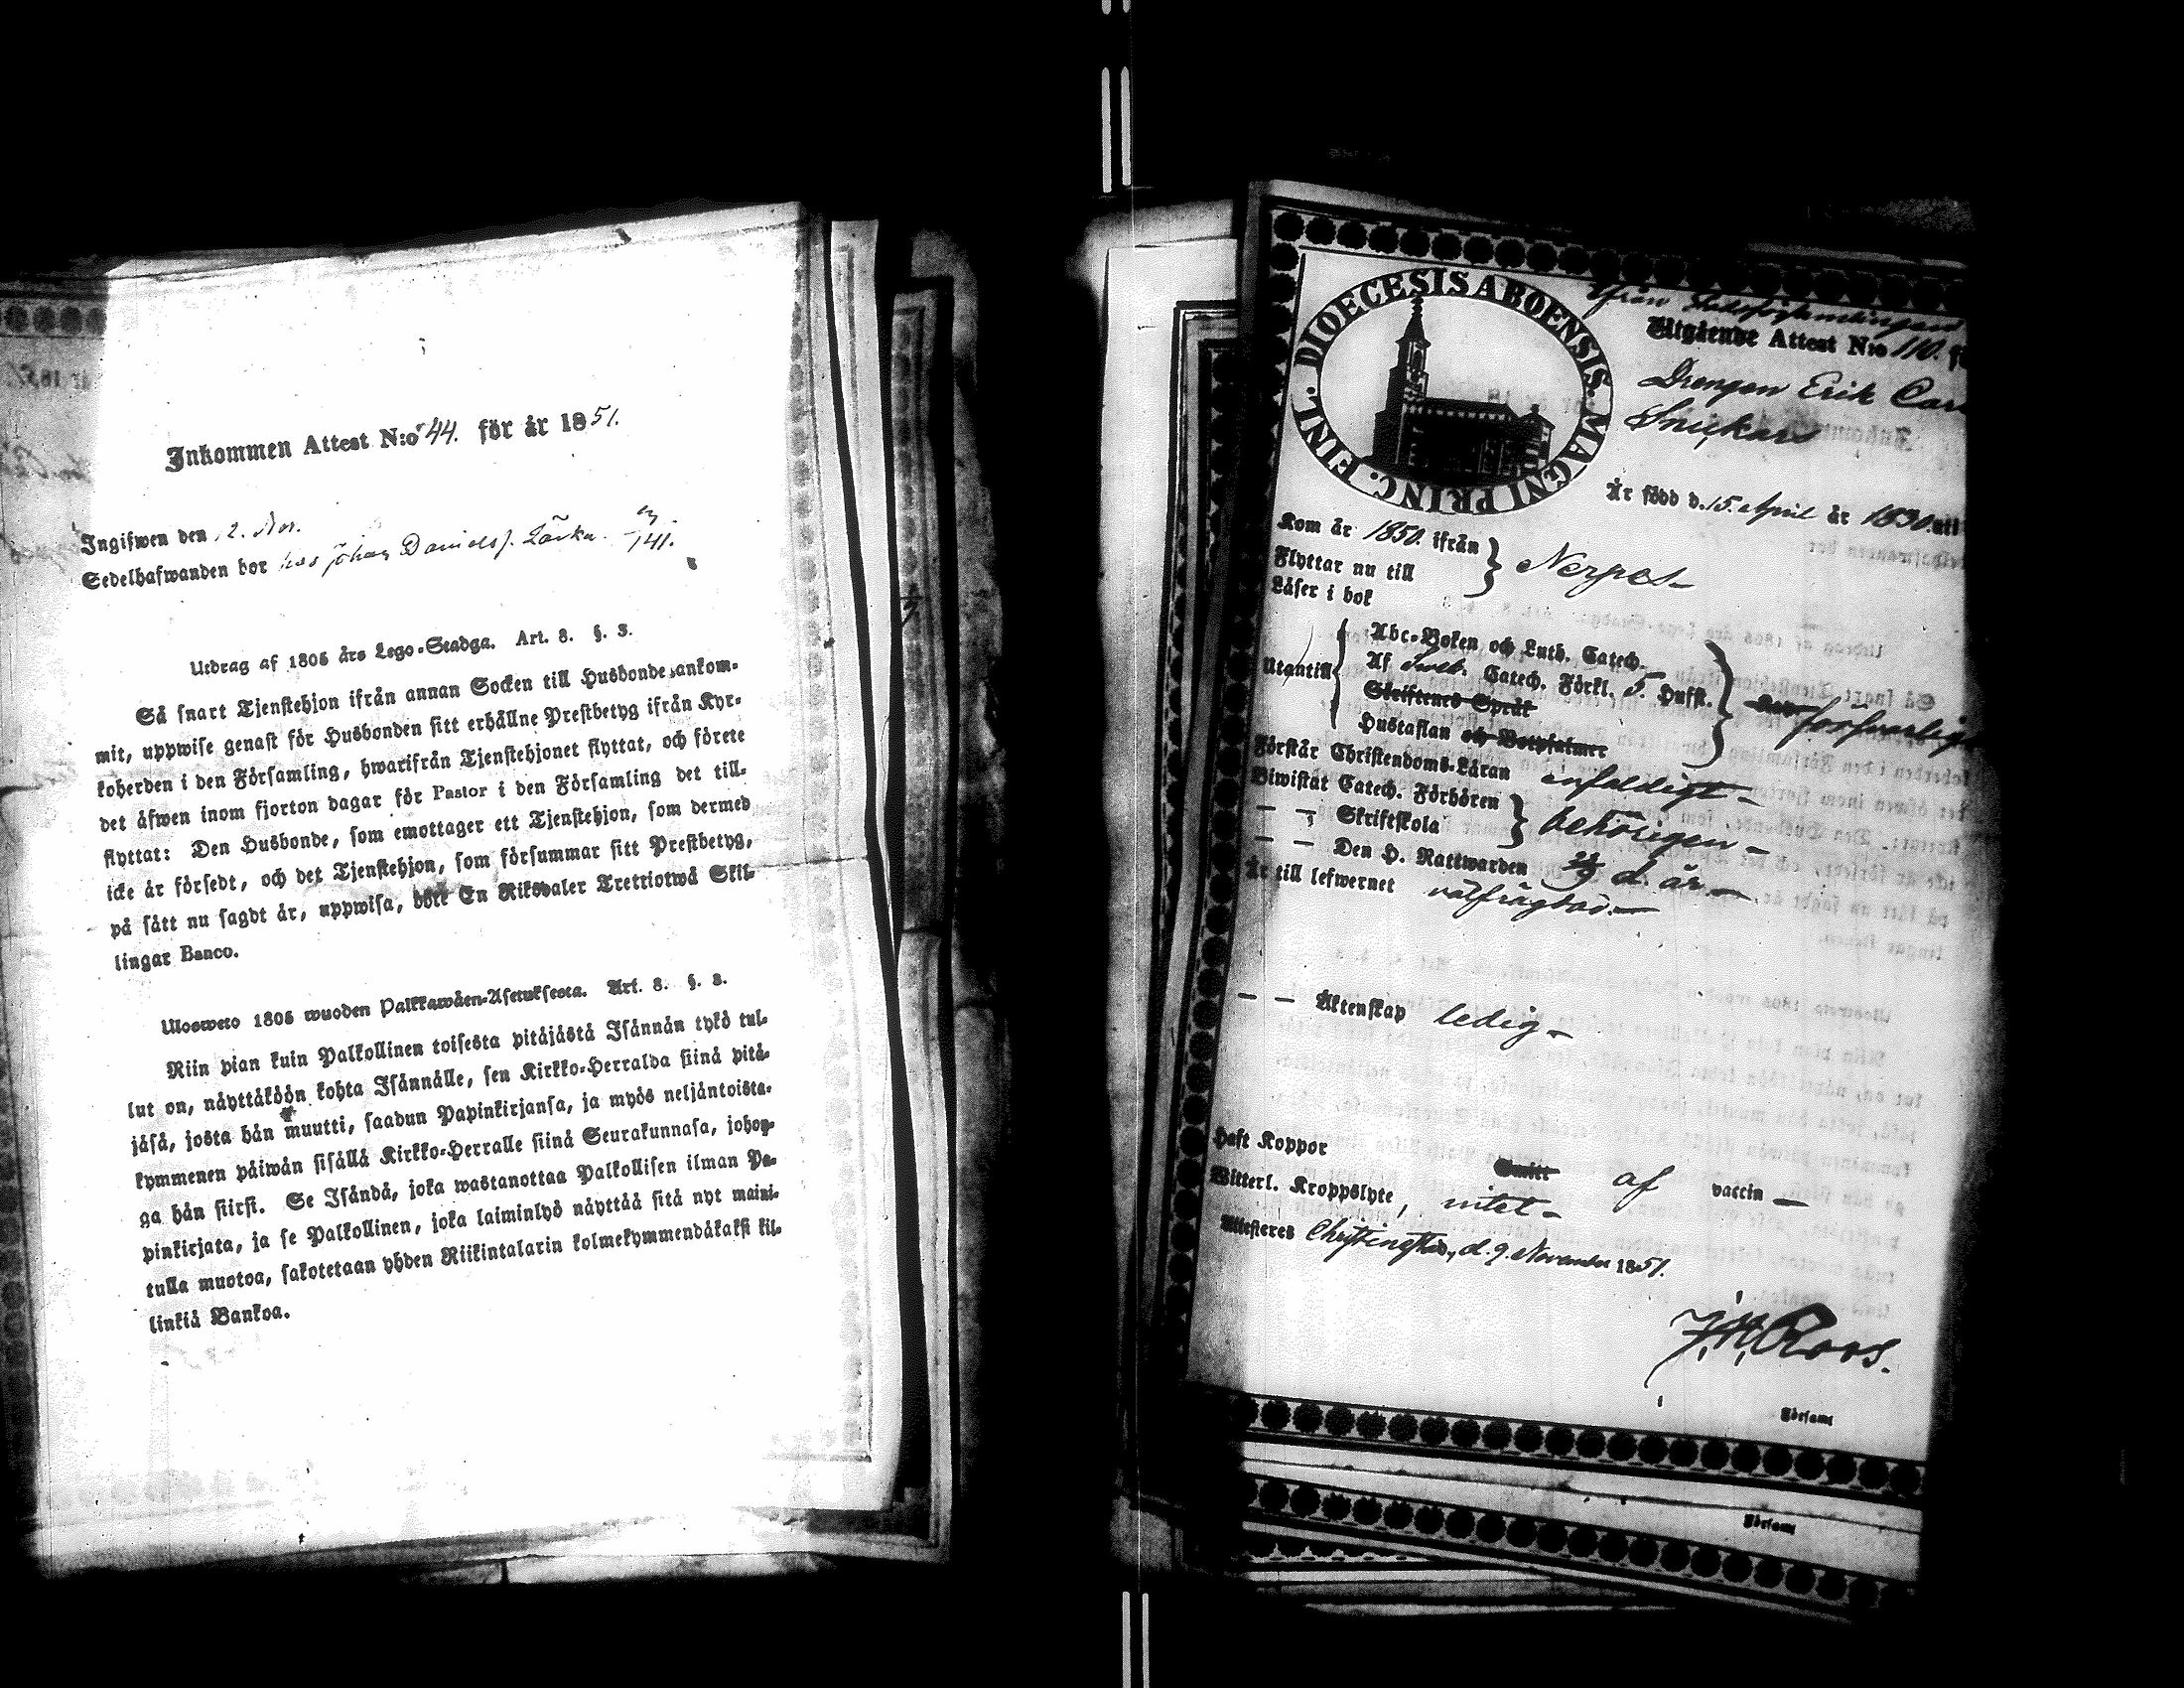 Inkommen Attest N:o 44. för år 1851.
Ingifwen den 12. Nov.
Sedelhafwanden bor hos Johan Daniels
Utdrag af 1805 års Lego-Stadga. Art. 8. §. 3.
Så snart Tjenstehjon ifrån annan Socken till Husbonde ankom-
mit, uppwise genast för Husbonden sitt erhållne Prestbetyg ifrån Kyr-
koherden i den Församling, hwarifrån Tjenstehjonet flyttat, och förete
det äfwen inom fjorton dagar för Pastor i den Församling det till-
flyttat: Den Husbonde, som emottager ett Tjenstehjon, som dermed
icke är försedt, och det Tjenstehjon, som försummar sitt Prestbetyg,
på sätt nu sagdt är, uppwisa, böte En Riksdaler Trettiotwå Skil-
lingar Banco.
Ulosweto 1805 wuoden Palkkawäen-Asetuksesta. Art. 8. §. 3.
Niin pian kuin Palkollinen toisesta pitäjästä Isännän tykö tul-
lut on, näyttäköön kohta Isännälle, sen Kirkko-Herralda siinä pitä-
jäsä, josta hän muutti, saadun Papinkirjansa, ja myös neljäntoista-
kymmenen päiwän sisällä Kirkko-Herralle siinä Seurakunnasa, johon-
ga hän siirsi. Se Isändä, joka wastanottaa Palkollisen ilman Pa-
pinkirjata, ja se Palkollinen, joka laiminlyö näyttää sitä nyt maini-
tulla muotoa, sakotetaan yhden Riikintalarin kolmekymmendäkaksi kil-
linkiä Bankoa.
DIOECESIS ABOENSIS. MAGNI PRINC. FINL.
Ifrån Stadsförsamlingen
Utgående Attest N:o 110. fö
Drengen Erik Car
Snickars
Är född d. 15. April år 1830. uti
Kom år 1850. ifrån
Flyttar nu till
Nerpes
Läser i bok
Utantill
Abc-Boken och Luth. Catech.
Af Sveb. Catech. Förkl. 5. Hufst.
Skriftenes Språk
Hustaflan och Botpsalmer
försvarligt
Förstår Christendoms-Läran enfaldigt
Biwistat Catech. Förhören
— — Skriftskola
behörigen
— — Den H. Nattwarden 22/9 d. år
Är till lefwernet välfrägdad.
— — Äktenskap ledig
Haft Koppor af vaccin
Witterl. Kroppslyte, intet
Attesteres Christinestad, d. 9. November 1851.
J. H. Roos.
Församl
Församl